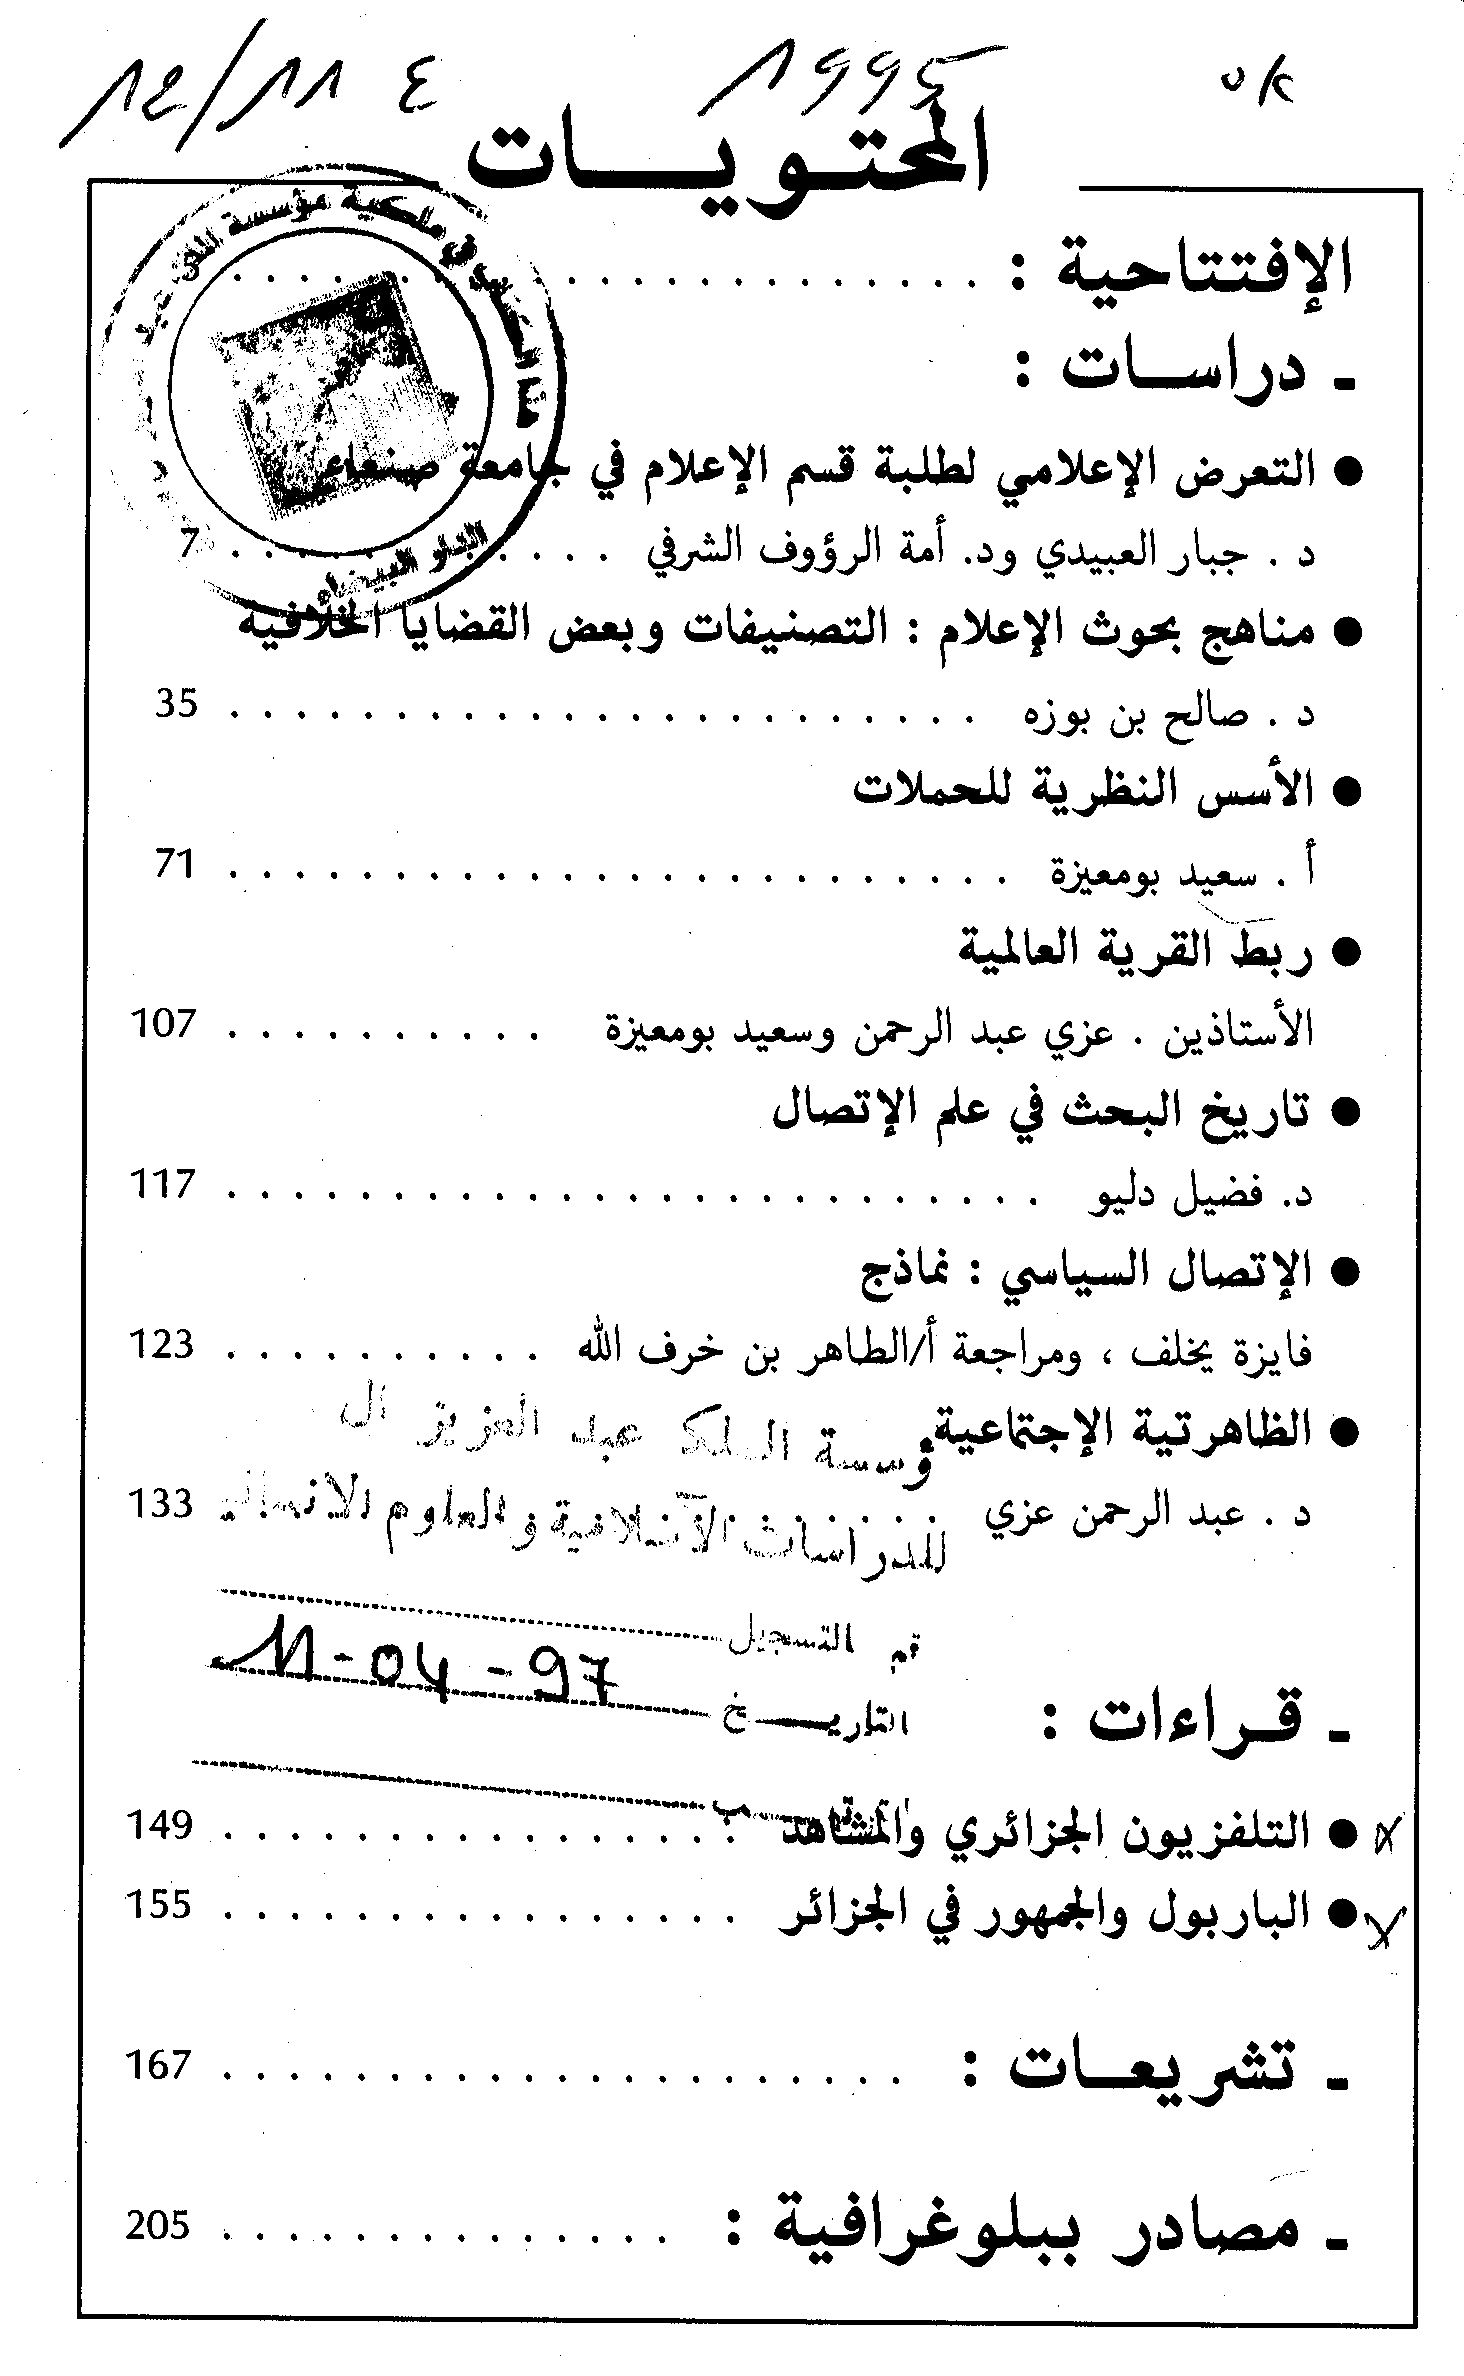 12/11 ع 1995 ok
المحتويات
الإفتتاحية : . . . . . . . . . . . . . . . . . . . . .
ـ دراسات :
● التعرض الإعلامي لطلبة قسم الإعلام في جامعة صنعاء
د . جبار العبيدي ود. أمة الرؤوف الشرفي . . . . . . . . . . . . 7
● مناهج بحوث الإعلام : التصنيفات وبعض القضايا الخلافية
د . صالح بن بوزه . . . . . . . . . . . . . . . . . . . . . . . 35
● الأسس النظرية للحملات
أ . سعيد بومعيزة . . . . . . . . . . . . . . . . . . . . . . . . 71
● ربط القرية العالمية
الأستاذين . عزي عبد الرحمن وسعيد بومعيزة . . . . . . . . . . 107
● تاريخ البحث في علم الإتصال
د. فضيل دليو . . . . . . . . . . . . . . . . . . . . . . . . . 117
● الإتصال السياسي : نماذج
فايزة يخلف ، ومراجعة أ/الطاهر بن خرف الله . . . . . . . . . . 123
● الظاهرتية الإجتماعية
ؤسسة الملك عبد العزيز ال
د . عبد الرحمن عزي . . . . . 133
للدراسات الاسلامية والعلوم الانسانية
قم التسجيل
التاريخ 11-04-97
ـ قراءات :
● التلفزيون الجزائري والمشاهد . . . . . . . . . . . . . . . . 149
● الباربول والجمهور في الجزائر . . . . . . . . . . . . . . . . 155
ـ تشريعات : . . . . . . . . . . . . . . . . . . . . . 167
ـ مصادر ببلوغرافية : . . . . . . . . . . . . . . 205